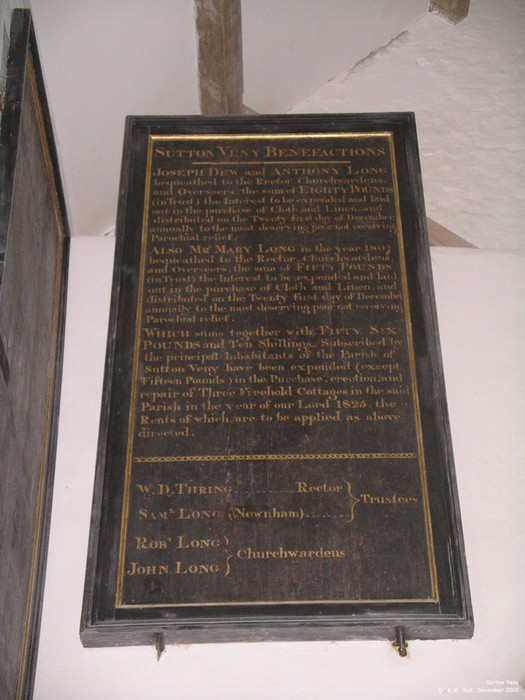 SUTTON VENY BENEFACTIONS
JOSEPH DEW and ANTHONY LONG
bequeathed to the Rector, Churchwardens,
and Overseers, the sum of EIGHTY POUNDS
(in Trust) the Interest to be expended and laid
out in the purchase of Cloth and Linen, and
distributed on the Twenty first day of December
annually to the most deserving poor not receiving
Parochial relief.
ALSO MRS MARY LONG in the year 1807
bequeathed to the Rector, Churchwardens,
and Overseers, the sum of FIFTY POUNDS
(in Trust) the Interest to be expended and laid
out in the purchase of Cloth and Linen, and
distributed on the Twenty first day of December
annually to the most deserving poor not receiving
Parochial relief.
WHICH sums together with FIFTY SIX
POUNDS and Ten Shillings, Subscribed by
the principal Inhabitants of the Parish of
Sutton Veny have been expended (except
Fifteen Pounds) in the Purchase, erection, and
repair of Three Freehold Cottages in the said
Parish in the year of our Lord 1825, the
Rents of which are to be applied as above
directed.
W. D. THRING ............ Rector
SAML LONG (Newnham) ........
Trustees
ROBT LONG
Churchwardens
JOHN LONG
Sutton Veny
December 2005